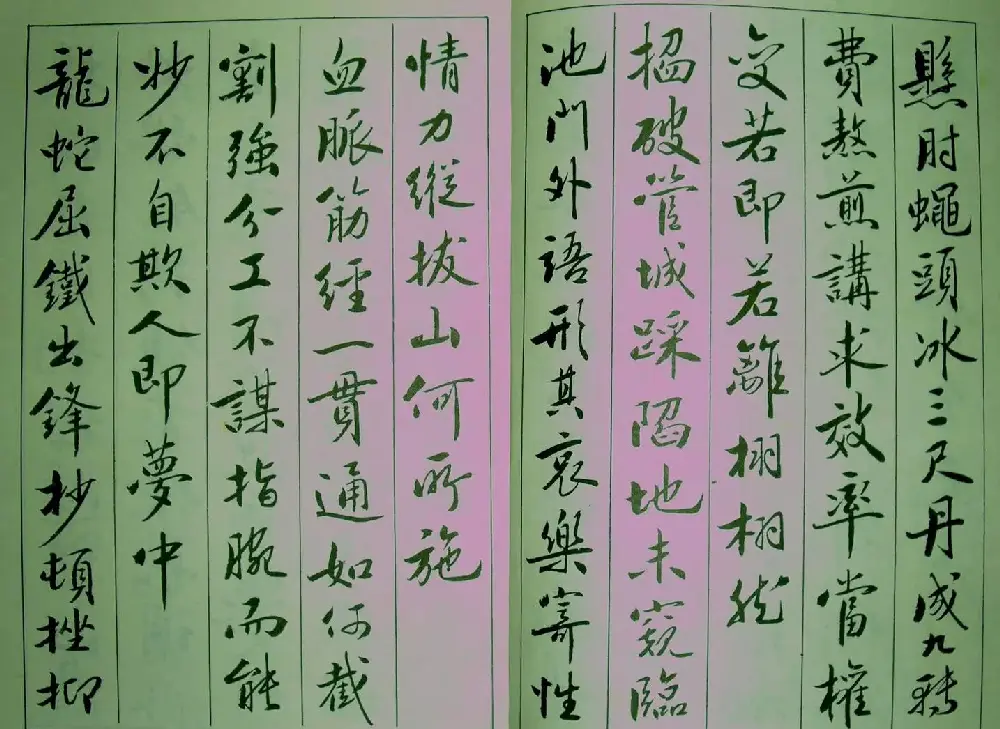 懸肘蠅頭冰三尺丹成九轉
費熬煎講求效率當權
變若即若離栩栩然
搵破管城踩陷地未窺臨
池門外語形其哀樂寄性
情力縱拔山何所施
血脈筋經一貫通如何截
割強分工不謀指腕而能
妙不自欺人即夢中
龍蛇屈鐵出鋒杪頓挫抑